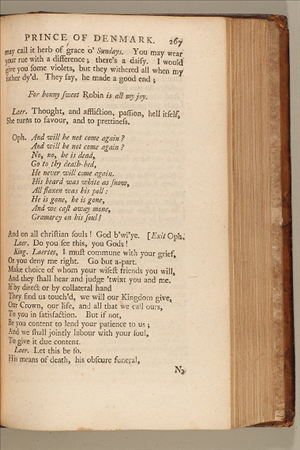 PRINCE OF DENMARK. 267
may call it herb of grace o' Sundays. You may wear
your rue with a difference; there's a daisy. I would
give you some violets, but they withered all when my
father dy'd. They say, he made a good end;
For bonny sweet Robin is all my joy.
Laer. Thought, and affliction, passion, hell itself,
She turns to favour, and to prettiness.
Oph. And will he not come again?
And will he not come again?
No, no, he is dead,
Go to thy death-bed,
He never will come again.
His beard was white as snow,
All flaxen was his poll:
He is gone, he is gone,
And we cast away mone,
Gramercy on his soul!
And on all christian souls! God b'wi'ye. [Exit Oph.
Laer. Do you see this, you Gods!
King. Laertes, I must commune with your grief,
Or you deny me right. Go but a-part.
Make choice of whom your wisest friends you will,
And they shall hear and judge 'twixt you and me.
If by direct or by collateral hand
They find us touch'd, we will our Kingdom give,
Our Crown, our life, and all that we call ours,
To you in satisfaction. But if not,
Be you content to lend your patience to us;
And we shall jointly labour with your soul,
To give it due content.
Laer. Let this be so.
His means of death, his obscure funeral,